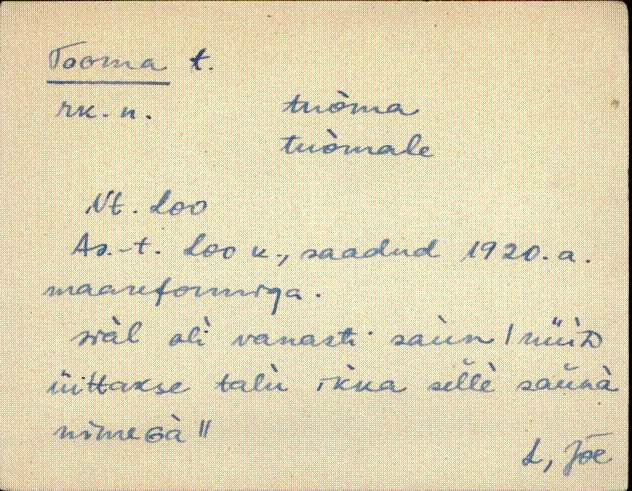 Tooma t.
rk. n. tuòma
tuòmale
Nt. Loo
As.-t. Loo k., saadud 1920. a.
maareformiga.
siäl oli vanasti saùn / nüiD
üittakse talù ikka sellè saùnà
nimeGà //
L. Jõe